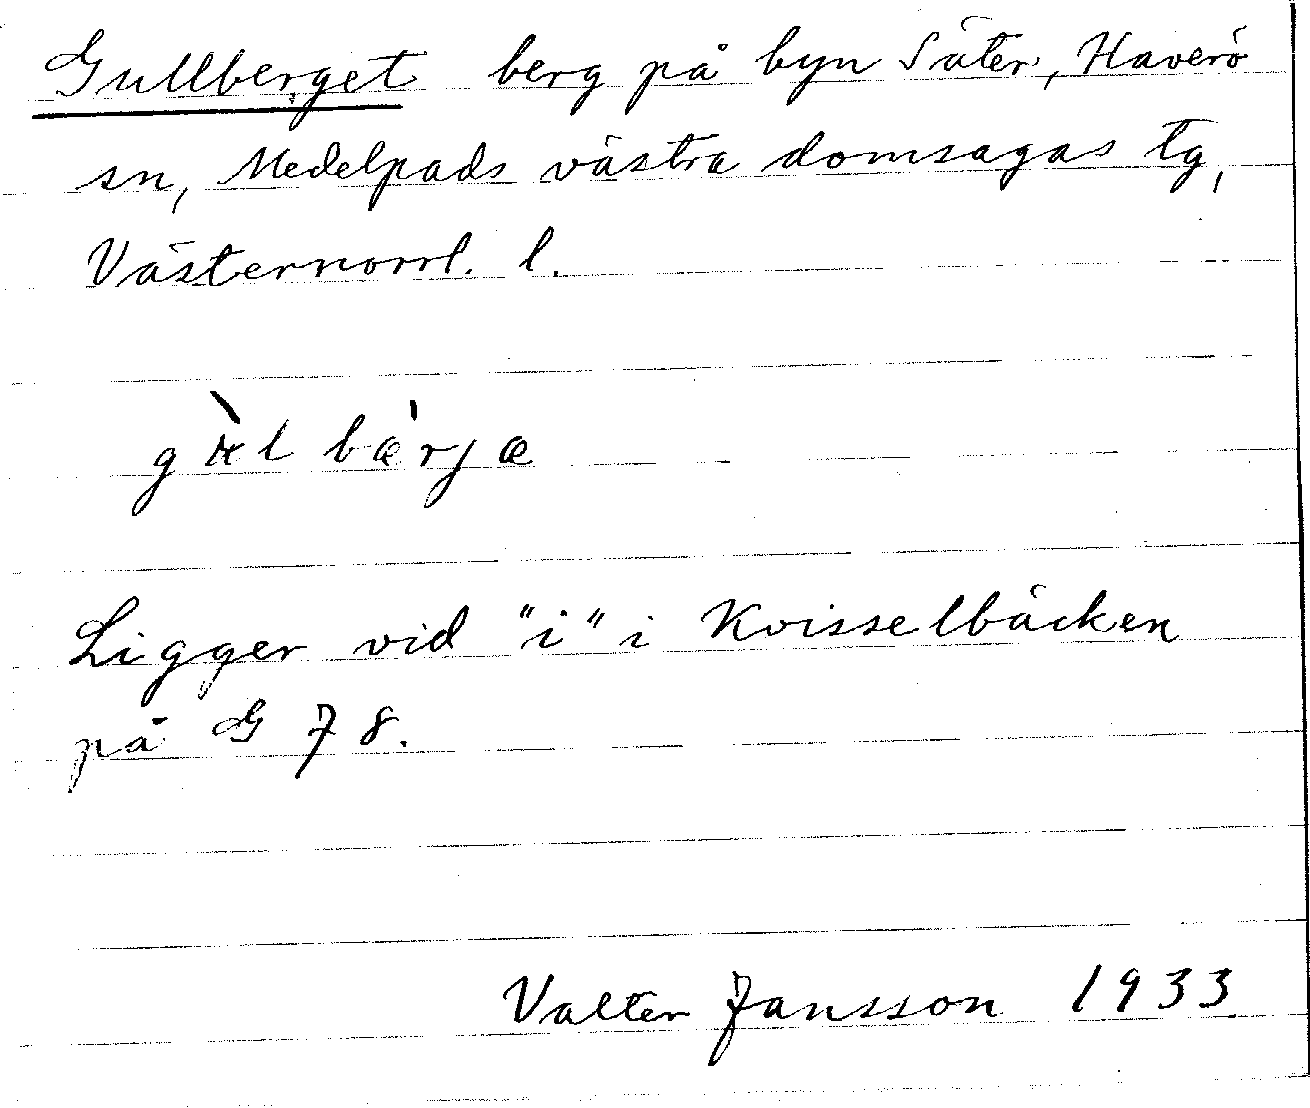 Gullberget berg på byn Säter, Haverö
sn, Medelpads västra domsagas tg,
Västernorrl. l.
bæ̀rjæ
Ligger vid "i" i Kvisselbäcken
på G 78.
Valter Jansson 1933